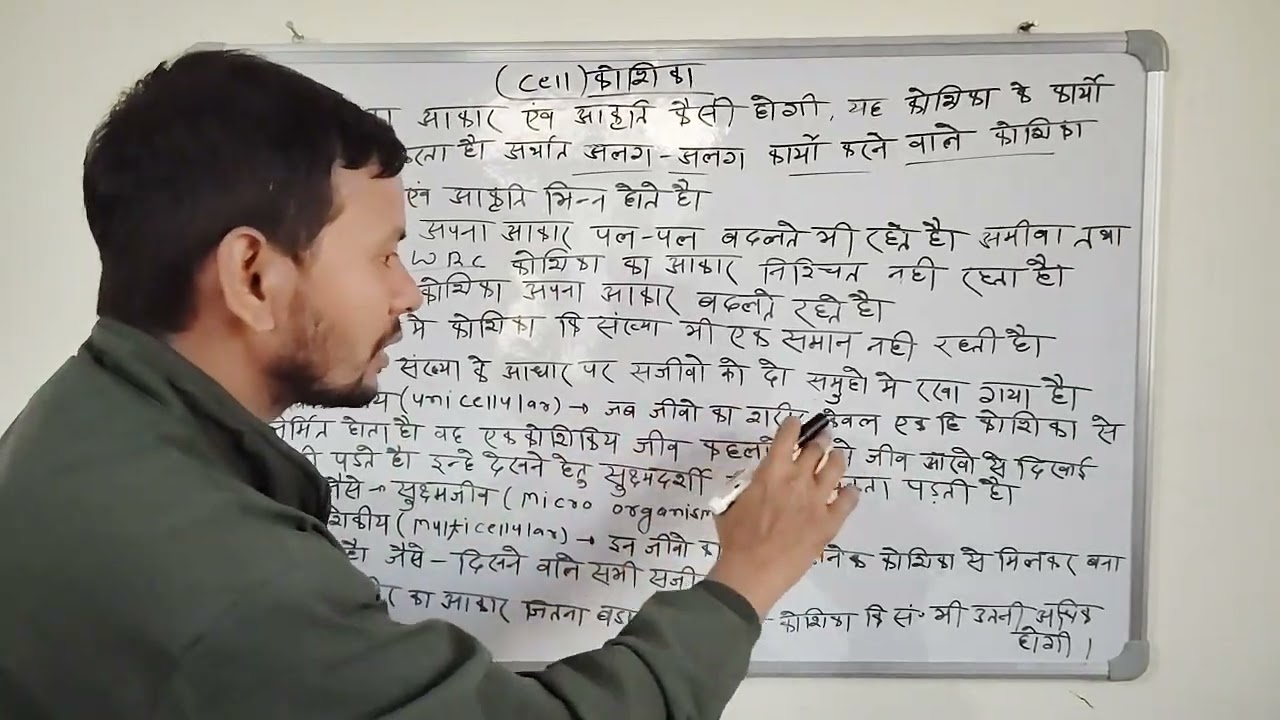 (Cell) कोशिका
आकार एंव आकृति कैसी होगी, यह कोशिका के कार्यो
करता है। अर्थात अलग-अलग कार्यो करने वाले कोशिका
एंव आकृति भिन्न होते है।
अपना आकार पल-पल बदलते भी रहते है। अमीबा तथा
WBC कोशिका का आकार निश्चित नही रहता है।
कोशिका अपना आकार बदलते रहते है।
मे कोशिका कि संख्या भी एक समान नही रहती है।
संख्या के आधार पर सजीवो को दो समुहो मे रखा गया है।
(Unicellular) → जब जीवो का शरीर केवल एक हि कोशिका से
निर्मित होता है। वह एककोशिकिय जीव
जीव आखो से दिखाई
पड़ते है। इन्हे देखने हेतु सुक्ष्मदर्शी
पड़ती है।
जैसे → सुक्ष्मजीव (micro organism
(multicellular) → इन जीवो का
कोशिका से मिलकर बना
है। जैसे - दिखने वाले सभी
का आकार जितना बड़ा
कोशिका कि सं॰ भी उतनी अधिक
होगी।